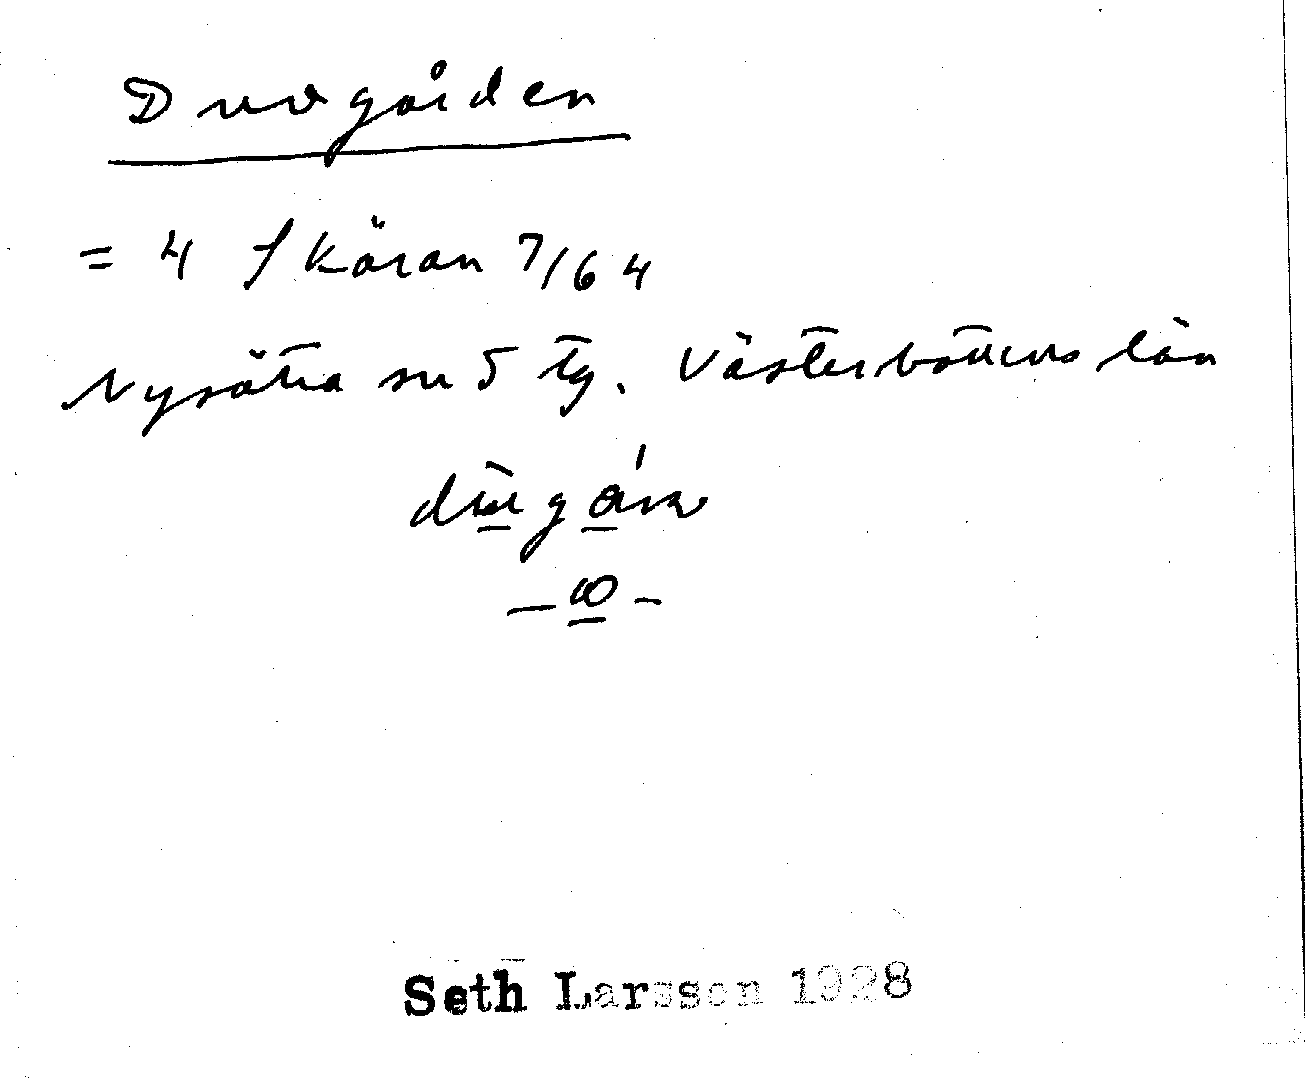 Druvgården
= 4 Skäran 7/64
Nysätra sn 5 tg. Västerbottens län
Seth Larsson 1928